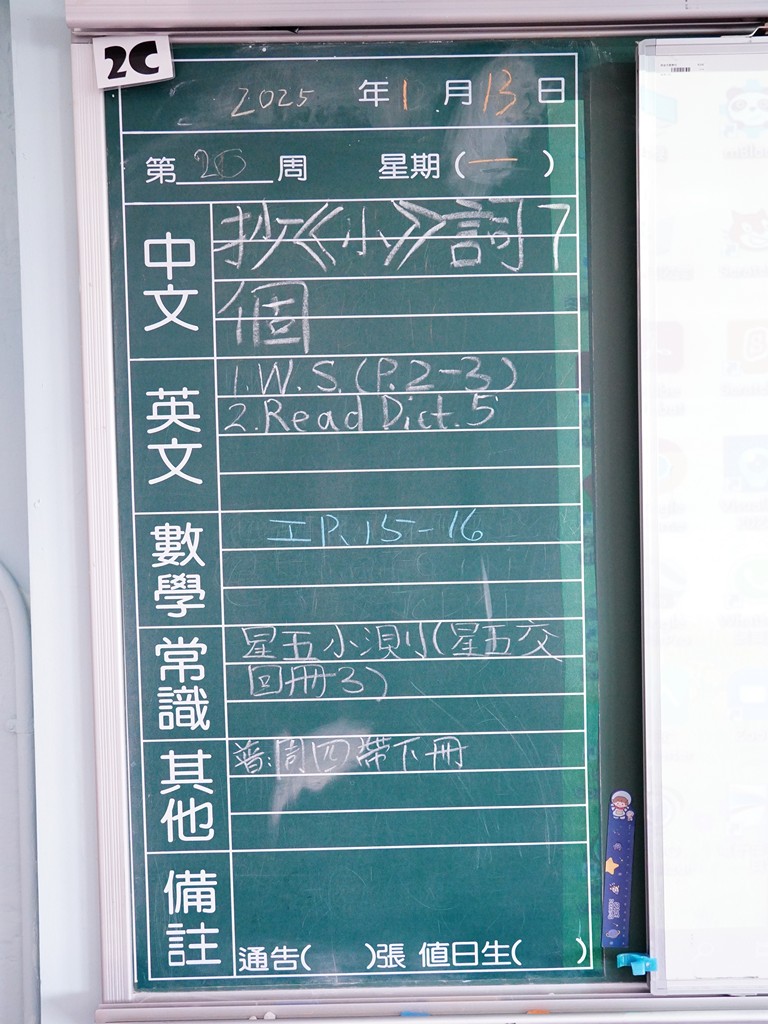 2C
2025 年 1 月 13 日
第 20 周 星期 (一)
中文
抄《小》詞7
個
英文
1. W.S. (P.2-3)
2. Read Dict. 5
數學
工 P. 15-16
常識
星五小測(星五交
回冊3)
其他
普:周四帶下冊
備註
通告( )張 值日生( )